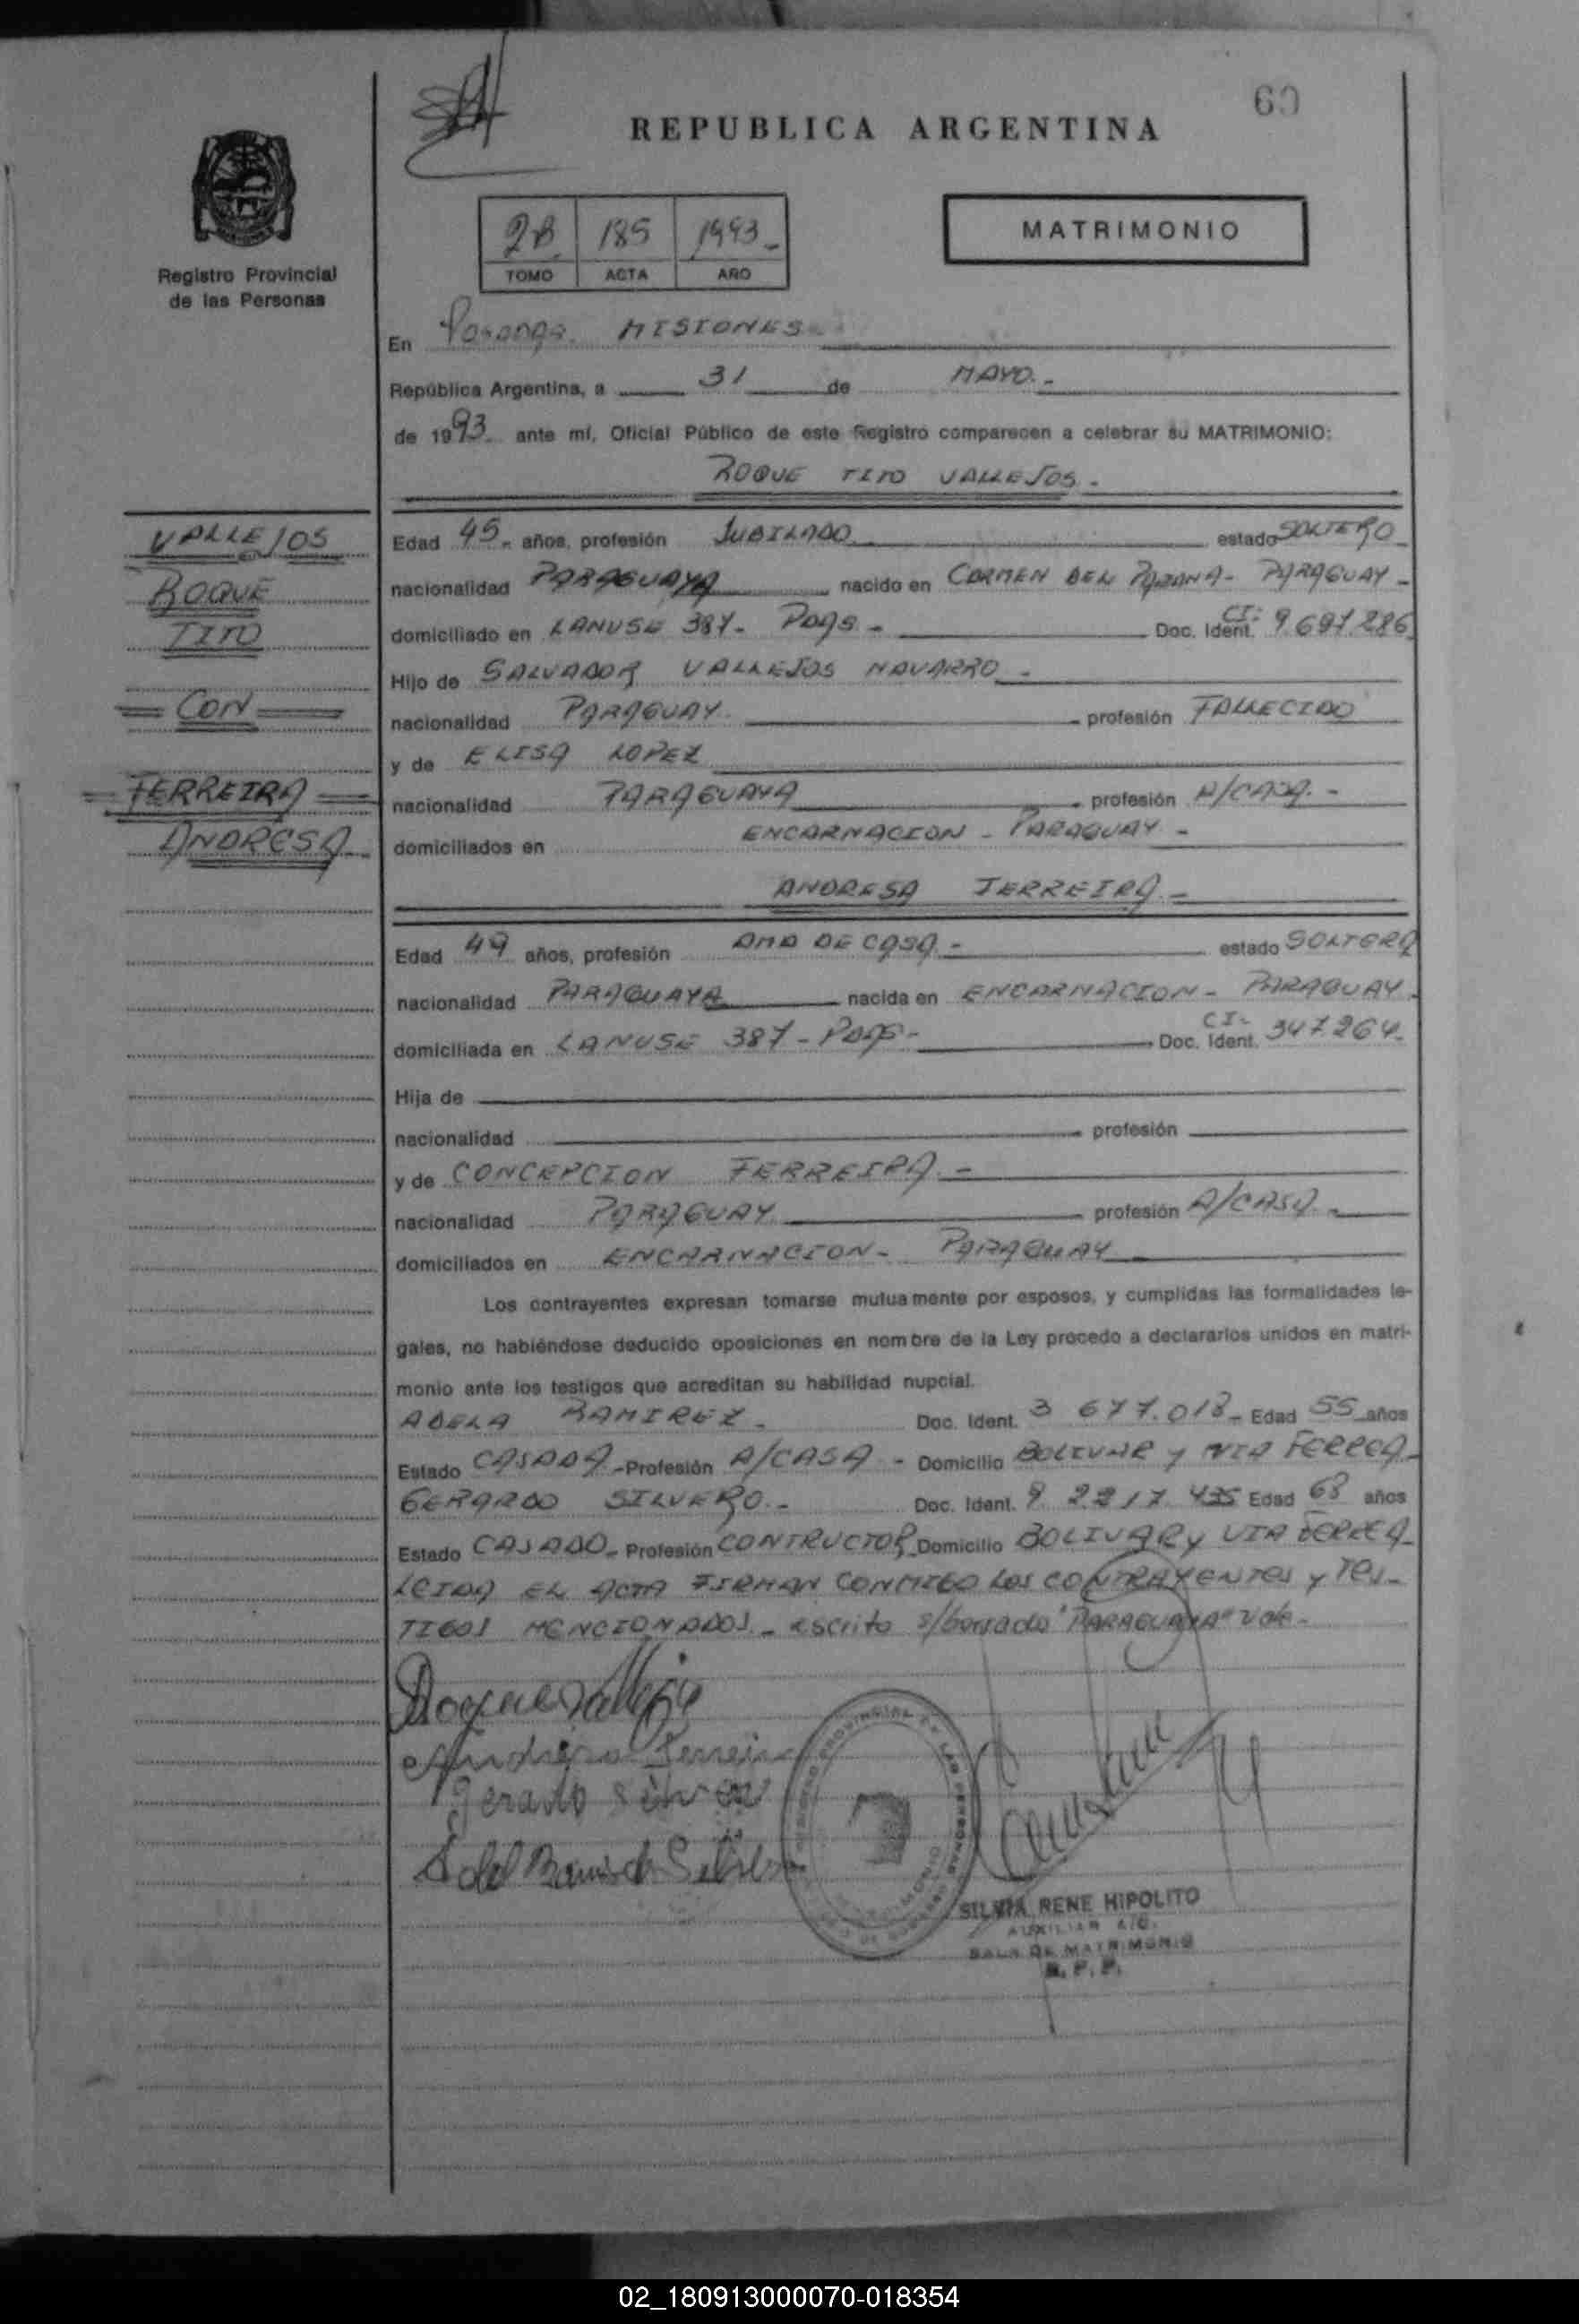 60
REPUBLICA ARGENTINA
2B 185 1993
TOMO ACTA AÑO
MATRIMONIO
Registro Provincial
de las Personas
En Posadas. MISIONES
República Argentina, a 31 de MAYO.-
de 1993 ante mí, Oficial Público de este Registro comparecen a celebrar su MATRIMONIO:
ROQUE TITO VALLEJOS.-
VALLEJOS
ROQUE
TITO
CON
FERREIRA
ANDRESA
Edad 45.- años, profesión JUBILADO estado SOLTERO
nacionalidad PARAGUAYA nacido en CARMEN DEL PARANA- PARAGUAY-
domiciliado en LANUSE 387- Pdas- Doc. Ident. CI- 9.697.286
Hijo de SALVADOR VALLEJOS NAVARRO-
nacionalidad PARAGUAY. profesión FALLECIDO
y de ELISA LOPEZ
nacionalidad PARAGUAYA profesión A/CASA.-
domiciliados en ENCARNACION - PARAGUAY-
ANDRESA FERREIRA-
Edad 49 años, profesión AMA DE CASA- estado SOLTERA
nacionalidad PARAGUAYA nacida en ENCARNACION- PARAGUAY.
domiciliada en LANUSE 387- Pdas- Doc. Ident. CI- 347.264-
Hija de
nacionalidad profesión
y de CONCEPCION FERREIRA.-
nacionalidad PARAGUAY profesión A/CASA.-
domiciliados en ENCARNACION- PARAGUAY
Los contrayentes expresan tomarse mutuamente por esposos, y cumplidas las formalidades le-
gales, no habiéndose deducido oposiciones en nombre de la Ley procedo a declararlos unidos en matri-
monio ante los testigos que acreditan su habilidad nupcial.
ADELA RAMIREZ- Doc. Ident. 3 677.018- Edad 55 años
Estado CASADA-Profesión A/CASA - Domicilio BOLIVAR y VIA FERREA-
GERARDO SILVERO.- Doc. Ident. Edad 68 años
Estado CASADO- Profesión CONTRUCTOR Domicilio BOLIVAR y VIA FERREA-
LEIDA EL ACTA FIRMAN CONMIGO LOS CONTRAYENTES y TES-
TIGOS MENCIONADOS.- escrito s/borrado "PARAGUAYA" vale-
Roque Vallejos
Andresa Ferreira
Gerardo Silvero
REGISTRO PROVINCIAL DE LAS PERSONAS
SILVIA RENE HIPOLITO
AUXILIAR A/C.
SALA DE MATRIMONIO
R. P. P.
02_180913000070-018354